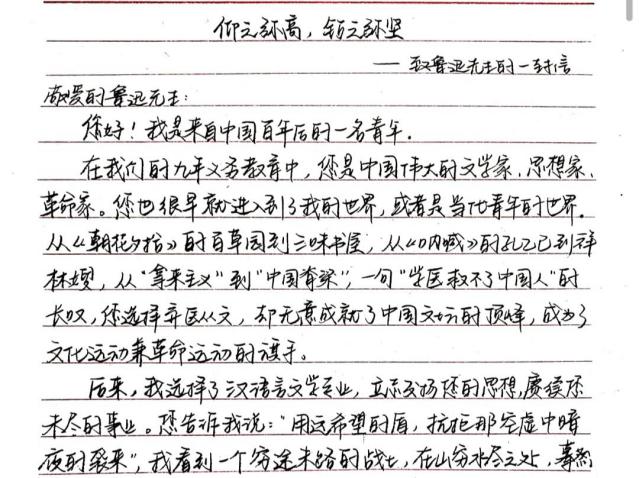 仰之弥高，钻之弥坚
——致鲁迅先生的一封信
敬爱的鲁迅先生：
您好！我是来自中国百年后的一名青年。
在我们的九年义务教育中，您是中国伟大的文学家、思想家、
革命家。您也很早就进入到了我的世界，或者是当代青年的世界。
从《朝花夕拾》的百草园到三味书屋，从《呐喊》的孔乙己到祥
林嫂，从"拿来主义"到"中国脊梁"，一句"学医救不了中国人"的
长叹，您选择弃医从文，却无意成就了中国文坛的顶峰，成为了
文化运动兼革命运动的旗手。
后来，我选择了汉语言文学专业，立志发扬您的思想，赓续您
未尽的事业。您告诉我说："用这希望的盾，抗拒那空虚中暗
夜的袭来"，我看到一个穷途末路的战士，在山穷水尽之处，